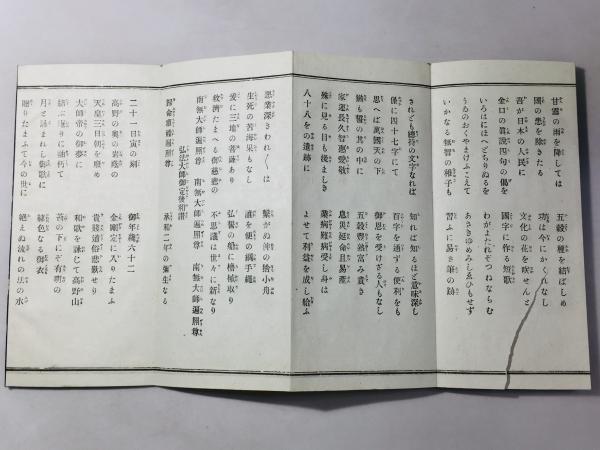 甘露の雨を降しては　五穀の種を結ばしめ
國の患を除きたる　功は今にかくれなし
吾が日本の人民に　文化の花を咲せんと
金口の眞說四句の偈を　國字に作る短歌
いろはにほへどちりぬるを　わがよたれぞつねならむ
うゐのおくやまけふこえて　あさきゆめみしゑひもせず
いかなる無智の稚子も　習ふに易き筆の跡
されども總持の文字なれば　知れば知るほど意味深し
僅に四十七字にて　百字を通ずる便利をも
思へば萬國天の下　御恩を受けざる人もなし
猶も誓の其の中に　五穀豐熟富み貴き
家運長久智慧愛敬　息災延命且易產
殊に見る目も淺ましき　業病難病受し身は
八十八をの遺跡に　よせて利益を成し給ふ
惡業深きわれ〳〵は　繫がぬ沖の捨小舟
生死の苦海果もなし　誰を便の綱手繩
爰に三地の菩薩あり　弘誓の船に櫓櫂取り
救濟たまへる御慈悲の　不思議は世々に新なり
南無大師遍照尊　南無大師遍照尊　南無大師遍照尊
弘法大師御定後和讃
歸命頂禮遍照尊　承和二年の彌生なる
二十一日寅の刻　御年歲六十二
高野の奧の岩蔭の　金剛定に入りたまふ
天皇三日朝を廢め　貴賤道俗悲歎せり
大師帝の御夢に　和歌を詠じて高野山
結ぶ庵りに袖朽て　苔の下にぞ有明の
月と詠まれし御歌に　色なる御衣
贈りたまふて今の世に　絕えぬ流れの法の水